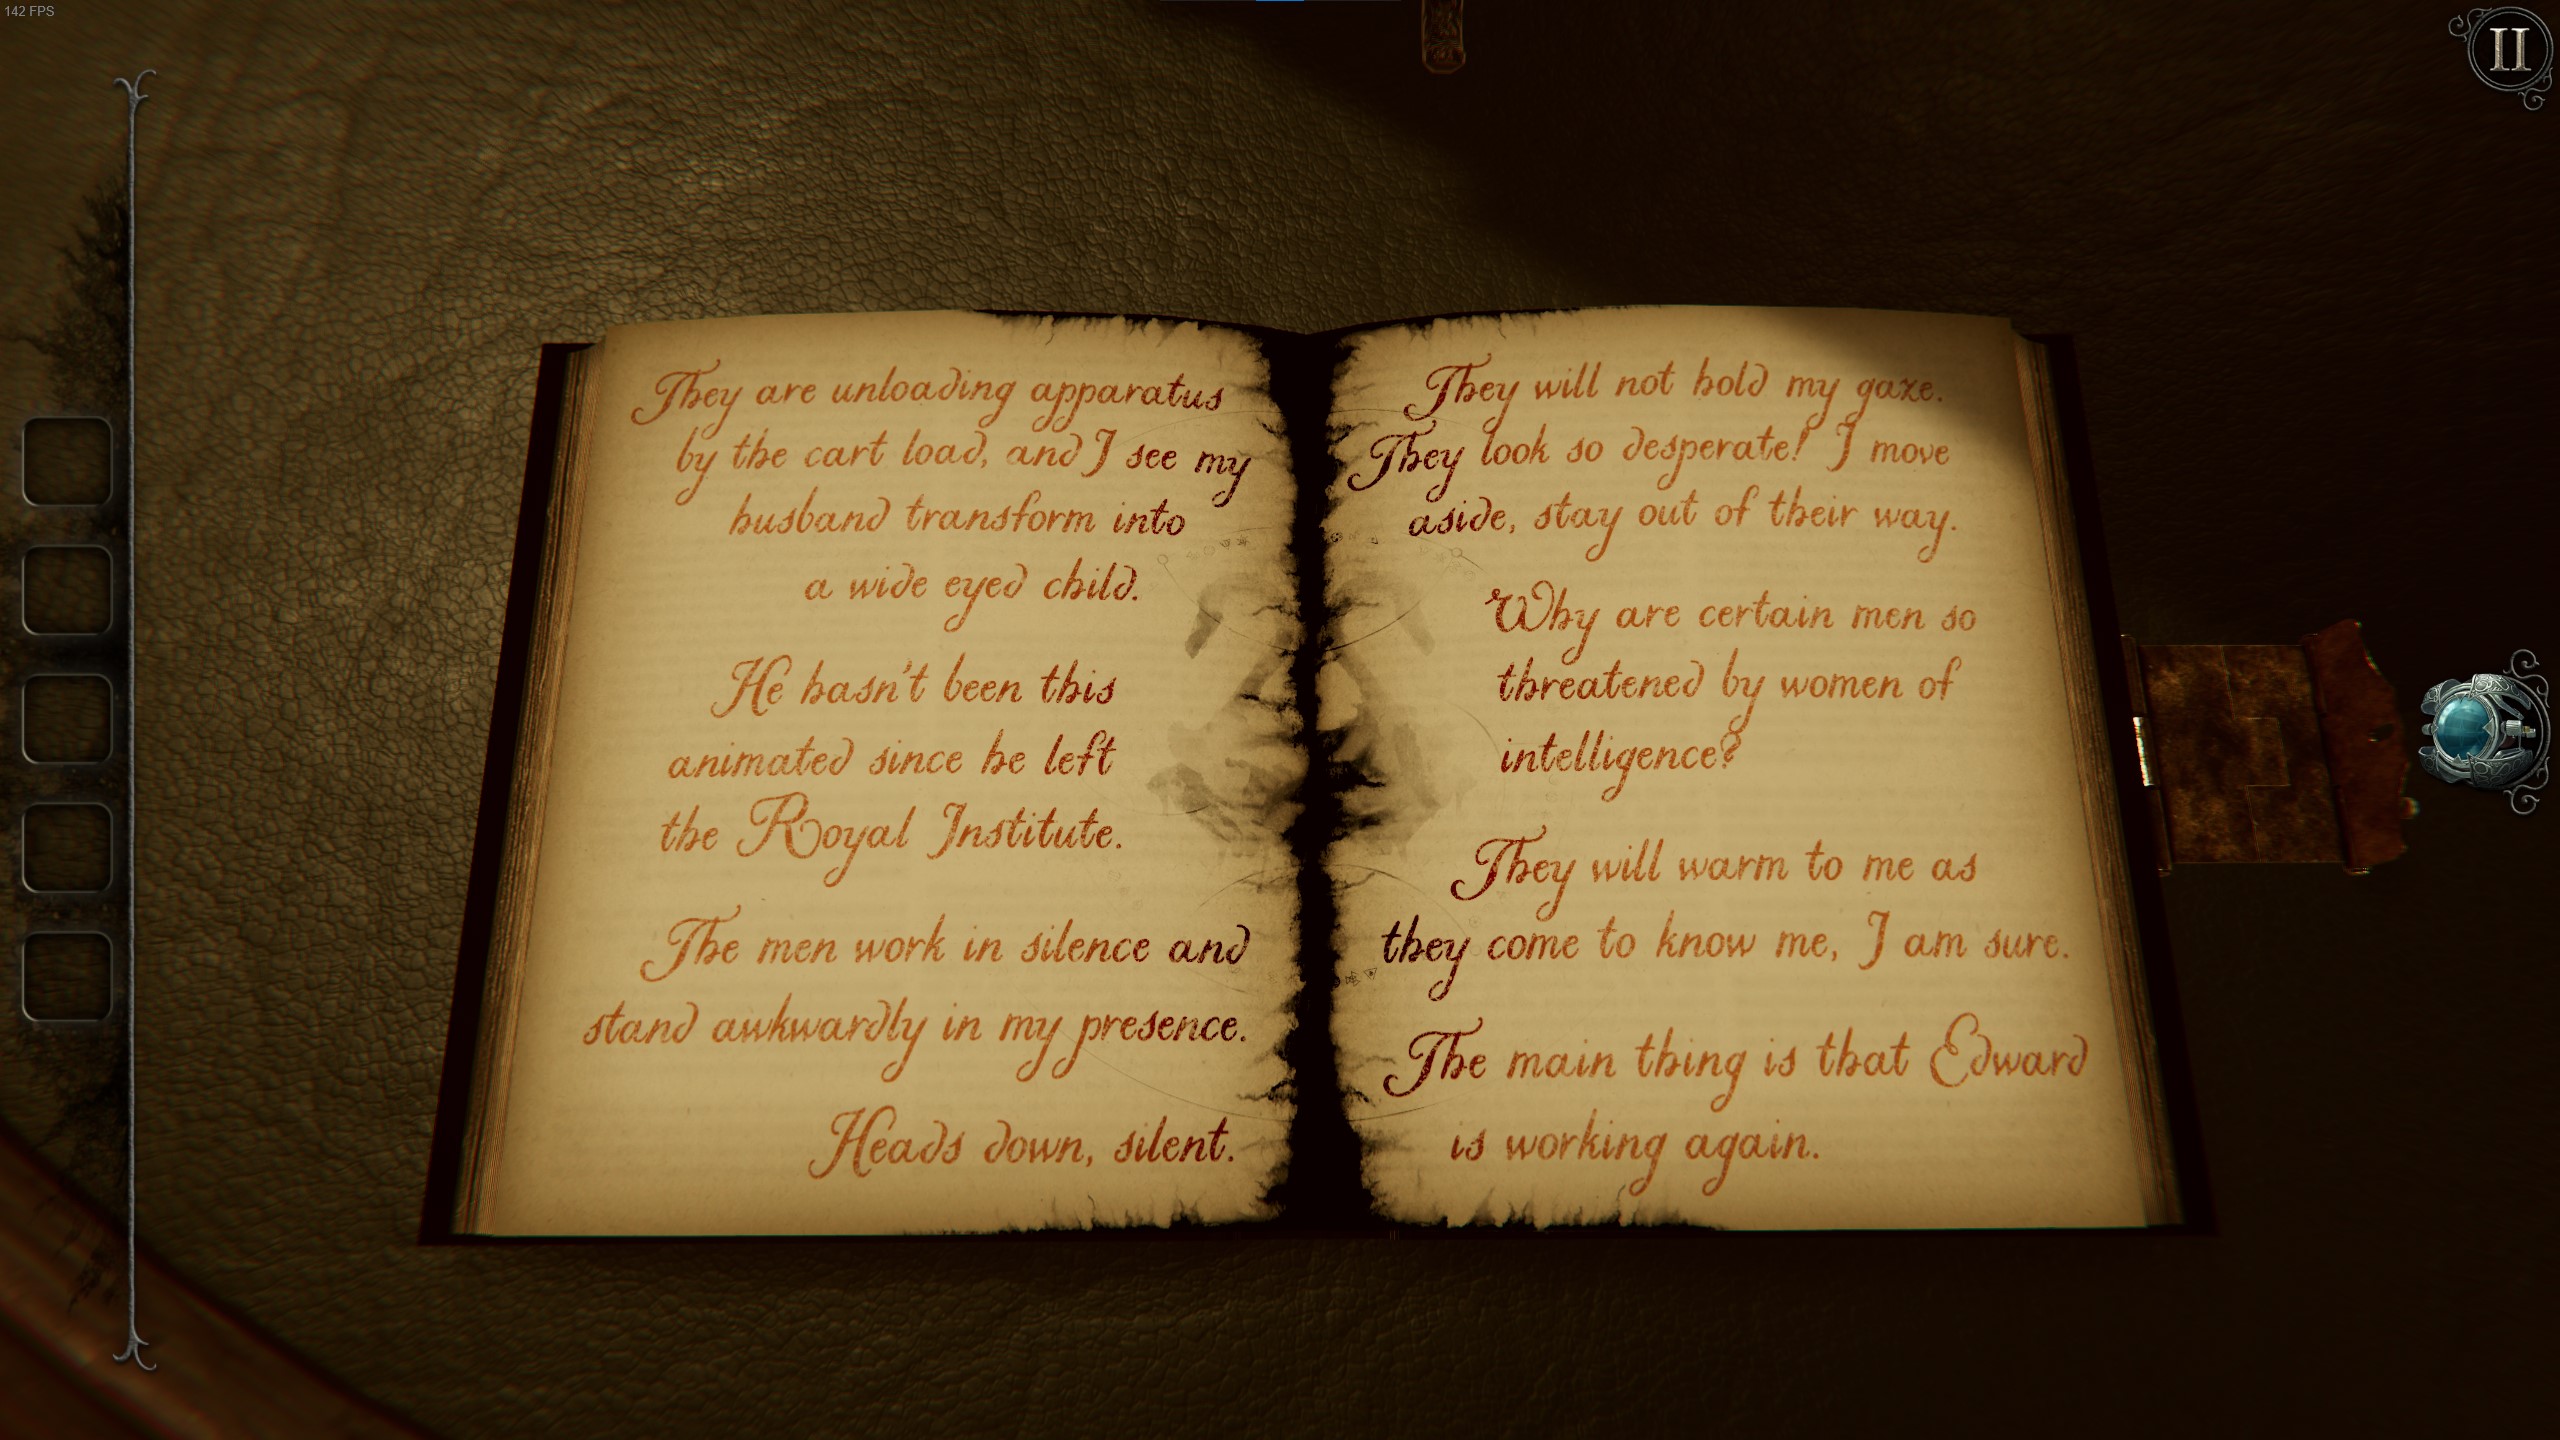 142 FPS
II
They are unloading apparatus
by the cart load, and I see my
husband transform into
a wide eyed child.
He hasn't been this
animated since he left
the Royal Institute.
The men work in silence and
stand awkwardly in my presence.
Heads down, silent.
They will not hold my gaze.
They look so desperate! I move
aside, stay out of their way.
Why are certain men so
threatened by women of
intelligence?
They will warm to me as
they come to know me, I am sure.
The main thing is that Edward
is working again.